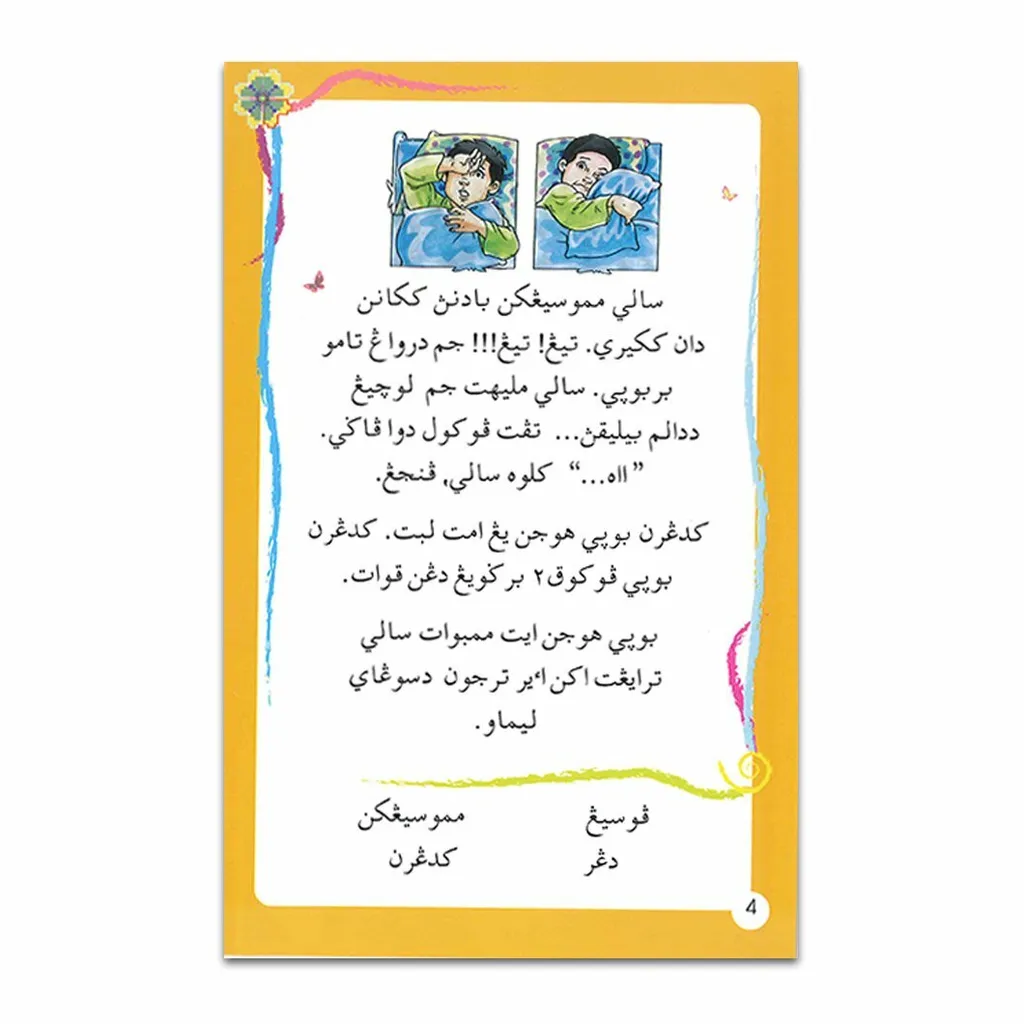 سالي مموسيڠكن بادنڽ ككانن
دان ككيري. تيڠ! تيڠ!!! جم درواڠ تامو
بربوڽي. سالي مليهت جم لوچيڠ
ددالم بيليقڽ... تڤت ڤوكول دوا ڤاݢي.
”ااه...“ كلوه سالي, ڤنجڠ.
كدڠرن بوڽي هوجن يڠ امت لبت. كدڠرن
بوڽي ڤوكوق٢ برݢويڠ دڠن قوات.
بوڽي هوجن ايت ممبوات سالي
ترايڠت اكن اٴير ترجون دسوڠاي
ليماو.
ڤوسيڠ
مموسيڠكن
دڠر
كدڠرن
4